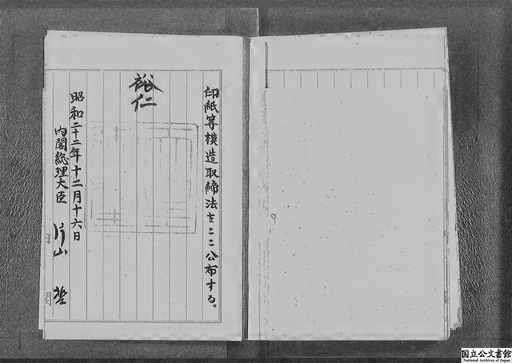 印紙等模造取締法をここに公布する。
裕仁
昭和二十二年十二月十六日
内閣総理大臣 片山 哲
国立公文書館
National Archives of Japan